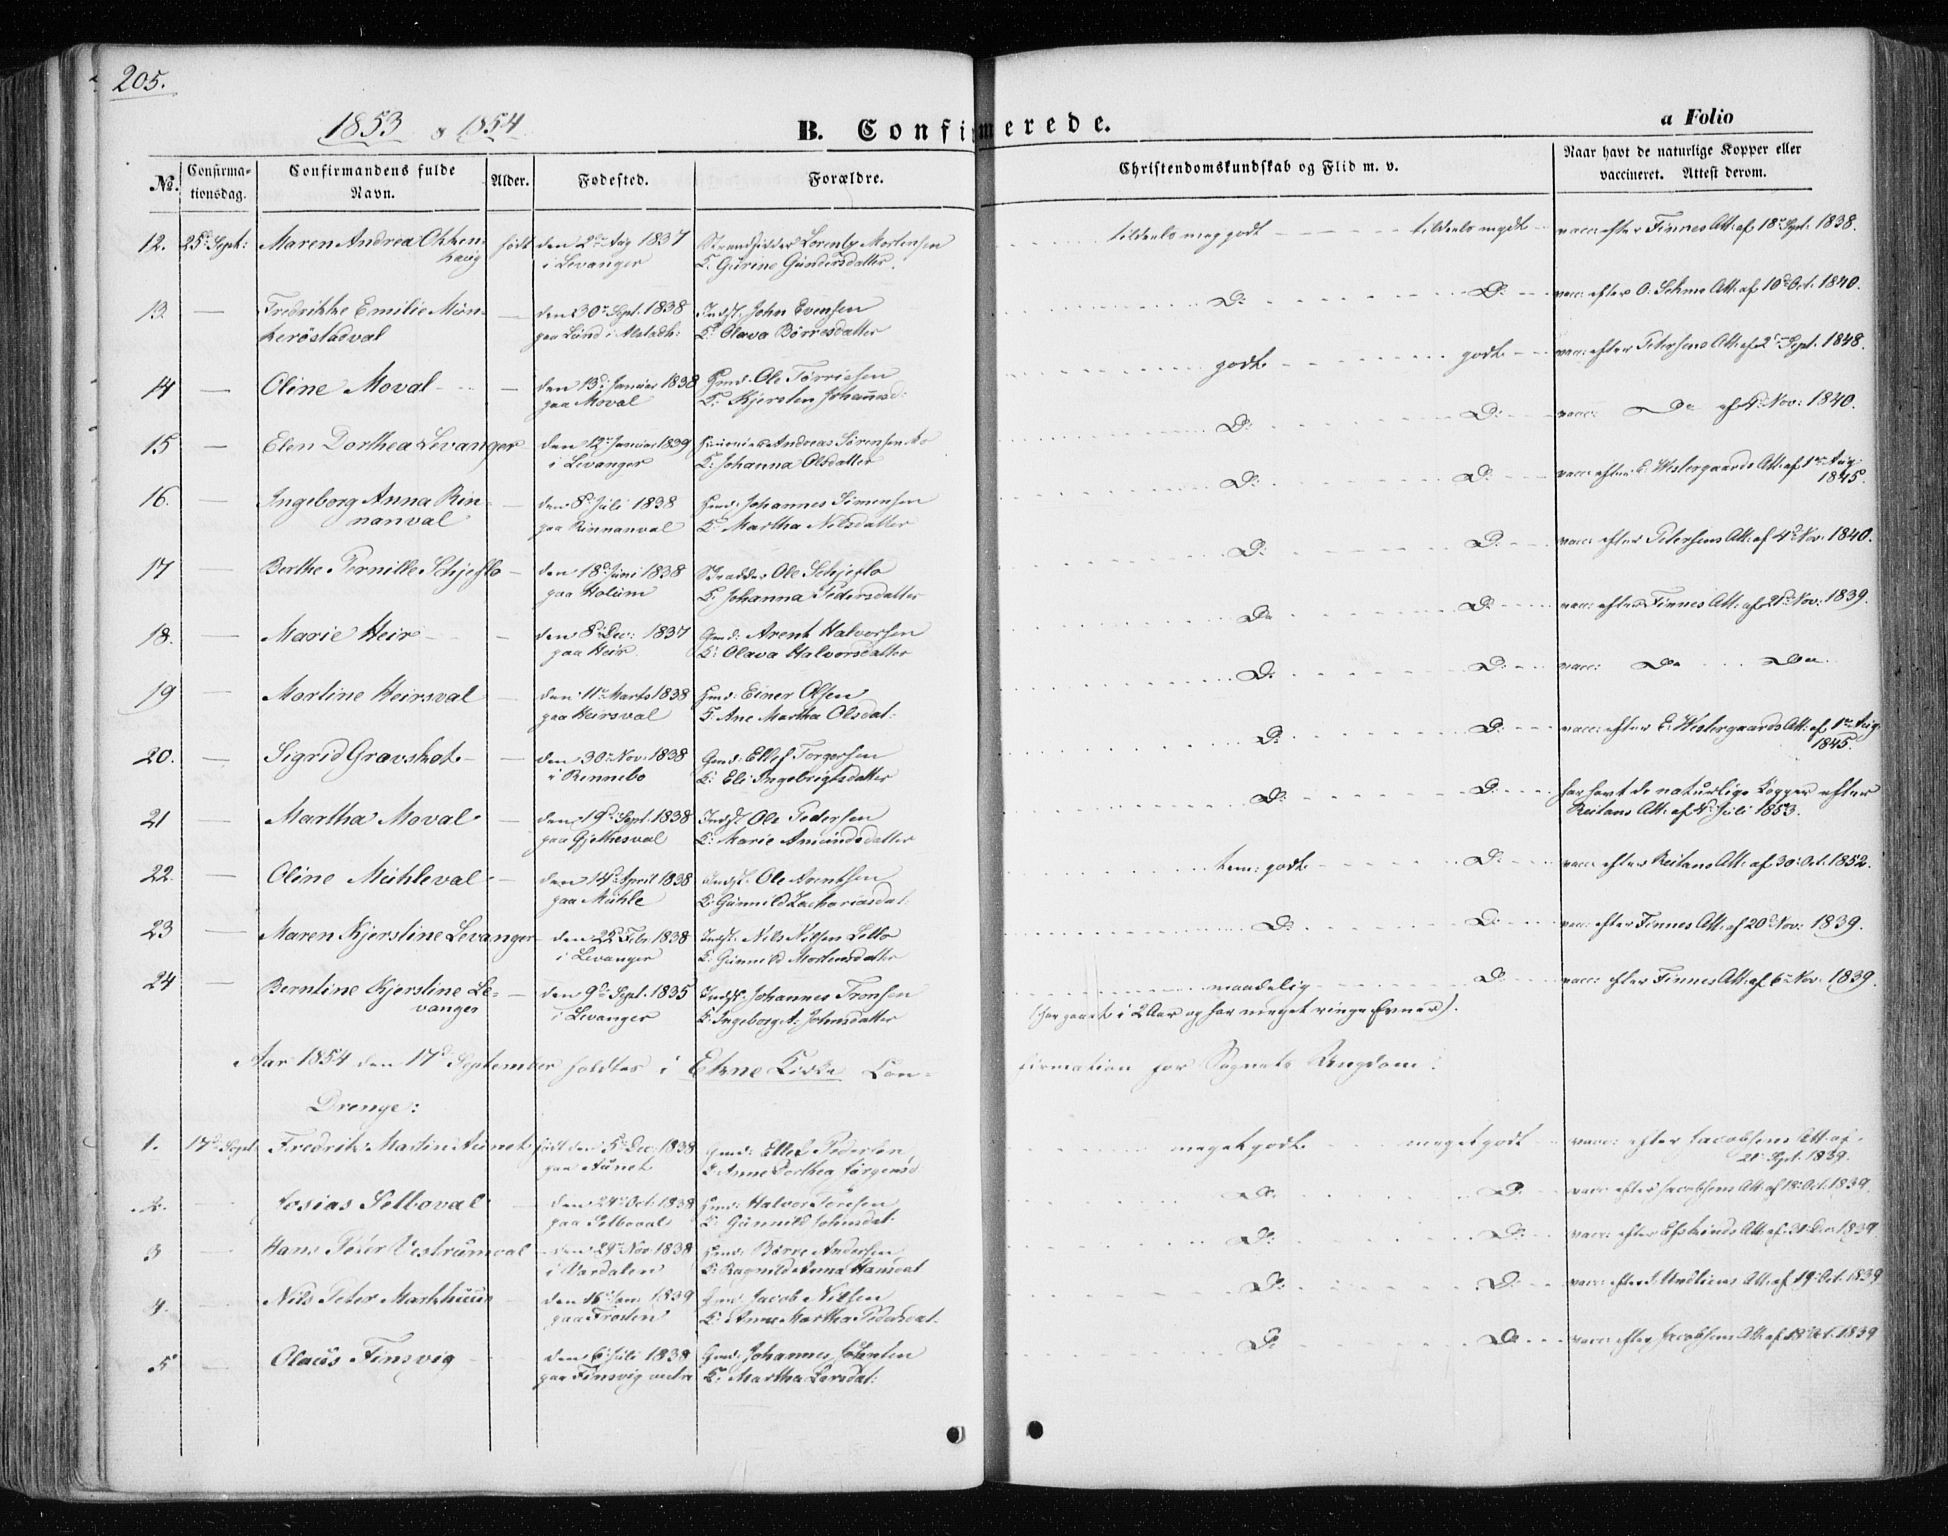 205.
1853 & 1854
B. Confirmerede.
a Folio
No.
Confirma-
tionsdag.
Confirmandens fulde
Navn.
Alder.
Fødested.
Forældre.
Christendomskundskab og Flid m. v.
Naar havt de naturlige Kopper eller
vaccineret. Attest derom.
12. 25d Sept: Maren Andrea født den 2den Aug 1837 Strandsidder Lorentz Mortensen tildels meg. godt vacc: efter Finnes Att: af 18de Sept. 1838.
haug i Levanger K: Gurine Gundersdatter.
13 — Fredrikke Emilie Mun- — den 30te Sept. 1838 Indst. John Evensen D: D: vacc: efter O. Att: af 10d Oct. 1840.
kerøstadval paa Lund i Alstadh: K: Olava Børresdatter
14 — Oline Moval — den 13d Januar 1838 Gmd. Ole godt godt vacc: efter Petersens Att: af 2den Sept. 1848.
paa Moval K: Kjersten Johannesd:
15 — Elen Dorthea Levanger den 12te Januar 1839 Andreas Sørensen D: D: vacc: Do af 4d Nov: 1840.
i Levanger K: Johanna Olsdatter
16. — Ingeborg Anna Rin- — den 8d Juli 1838 Hmd: Johannes Simensen D: D: vacc: efter E. Westergaards Att: af 1ste Aug:
1845.
nanval paa Rinnanval K: Martha Nilsdatter
17 — Berthe Pernille Schjeflo — den 18d Juni 1838 Ole Schjeflo D: D: vacc: efter Petersens Att: af 4d Nov: 1840.
paa Holum K: Johanna Pedersdatter
18. — Marie Heir — den 8d Dec: 1837 Gmd: Arent Halvorsen Do D: vacc: efter Finnes Att: af 21d Nov: 1839.
paa Heir K: Olava Halvorsdatter
19 — Martine Heirsval — den 11te Marts 1838 Hmd: Einer Olsen D: D: vacc: Do Do
paa Heirsval K: Ane Martha Olsdat:
20. — Sigrid Gravskot — den 30te Nov: 1838 Gmd: Ellef Torgersen D: D: vacc: efter E. Westergaards Att: af 1ste Aug:
1845.
i Rennebo K: Eli Ingebrigtsdatter
21 — Martha Moval — den 19d Sept. 1838 Indst. Ole Pedersen D: D: har havt de naturlige Kopper efter
paa Gjethesval K: Marie Amundsdatter Reitans Att: af 4d Juli 1853.
22. — Oline Mühleval — den 14d April 1838 Indst. Ole Arentsen tem: godt D: vacc: efter Reitans Att: af 30d Oct. 1852.
paa Mühle K: Gunnild Zachariasdat:
23 — Maren Kjerstine Levanger den 22d Febr. 1838 Indst: Nils Nilsen D: D: vacc: efter Finnes Att: af 20d Nov: 1839.
i Levanger K: Gunnild Mortensdatter
24 — Berntine Kjerstine Le- — den 9d Sept. 1835 Indst: Johannes Tronsen maadelig D: vacc: efter Finnes Att: af 6te Nov: 1839.
vanger i Levanger K: Ingeborg A: Johnsdatter (har gaaet i 2 Aar og har meget ringe Evner).
Aar 1854 den 17d September holdtes i Ekne Kirke Con-
firmation for Sognets Ungdom:
Drenge:
1. 17d Sept: Fredrik Martin Aunet født den 5d Dec: 1838 Gmd: Ellef Pedersen meget godt meget godt vacc: efter Jacobsens Att: af
21 Sept. 1839.
paa Aunet K: Anne Dorthea Jørgensd
2. — Josias Selboval — den 24de Oct. 1838 Hmd: Halvor Do D: vacc: efter Jacobsens Att: af 18 Oct. 1839.
paa Selboval K: Gunnild Johnsdat:
3 — Hans Peter Vestrumval — den 29de Nov. 1838 Hmd: Børre Andersen D: D: vacc: efter Att: af 31 Dec 1839.
i Værdalen K: Ragnild Anna Hansdat
4. — Nils Peter Markhuus — den 16de Jan: 1839 Gmd: Jacob Nilsen D: D: vacc: efter Att: af 19 Oct. 1839
paa Frosten K: Anne Martha Pedersdat:
5 — Olaus Finsvig — den 6d Juli 1838 Gmd: Johannes D: Do vacc: efter Jacobsens Att: af 18 Oct. 1839
paa Finsvig K: Martha Larsdat: